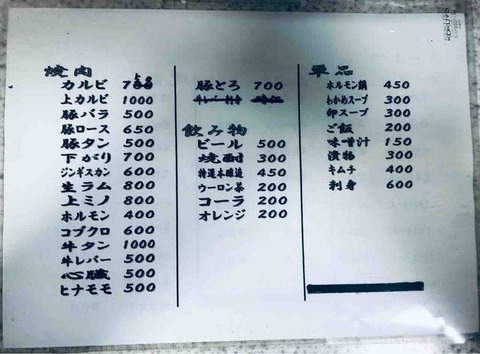 焼肉
カルビ 700
上カルビ 1000
豚バラ 500
豚ロース 650
豚タン 500
下がり 700
ジンギスカン 600
生ラム 800
上ミノ 800
ホルモン 400
コブクロ 600
牛タン 1000
牛レバー 500
心臓 500
ヒナモモ 500
豚とろ 700
飲み物
ビール 500
焼酎 300
特選本醸造 450
ウーロン茶 200
コーラ 200
オレンジ 200
単品
ホルモン鍋 450
わかめスープ 300
卵スープ 300
ご飯 200
味噌汁 150
漬物 300
キムチ 400
刺身 600